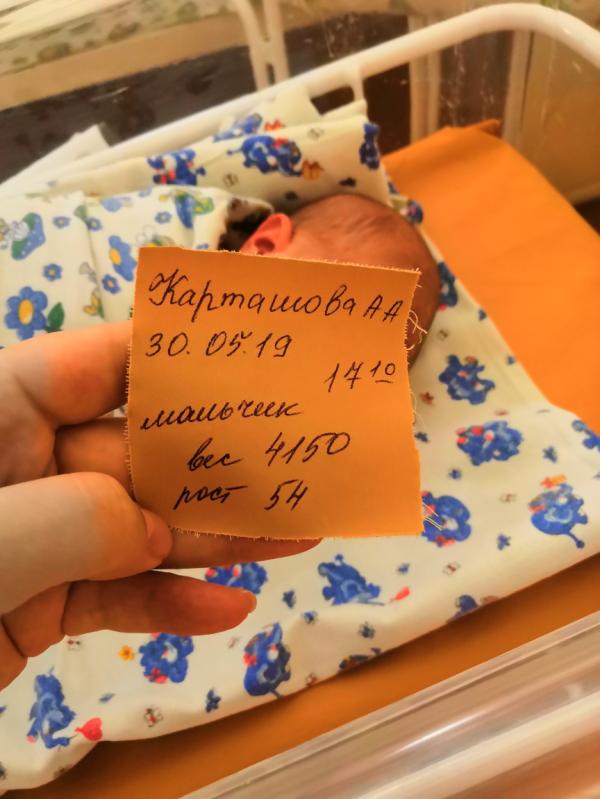 Карташова АА
30.05.19
17 10
мальчик
вес 4150
рост 54